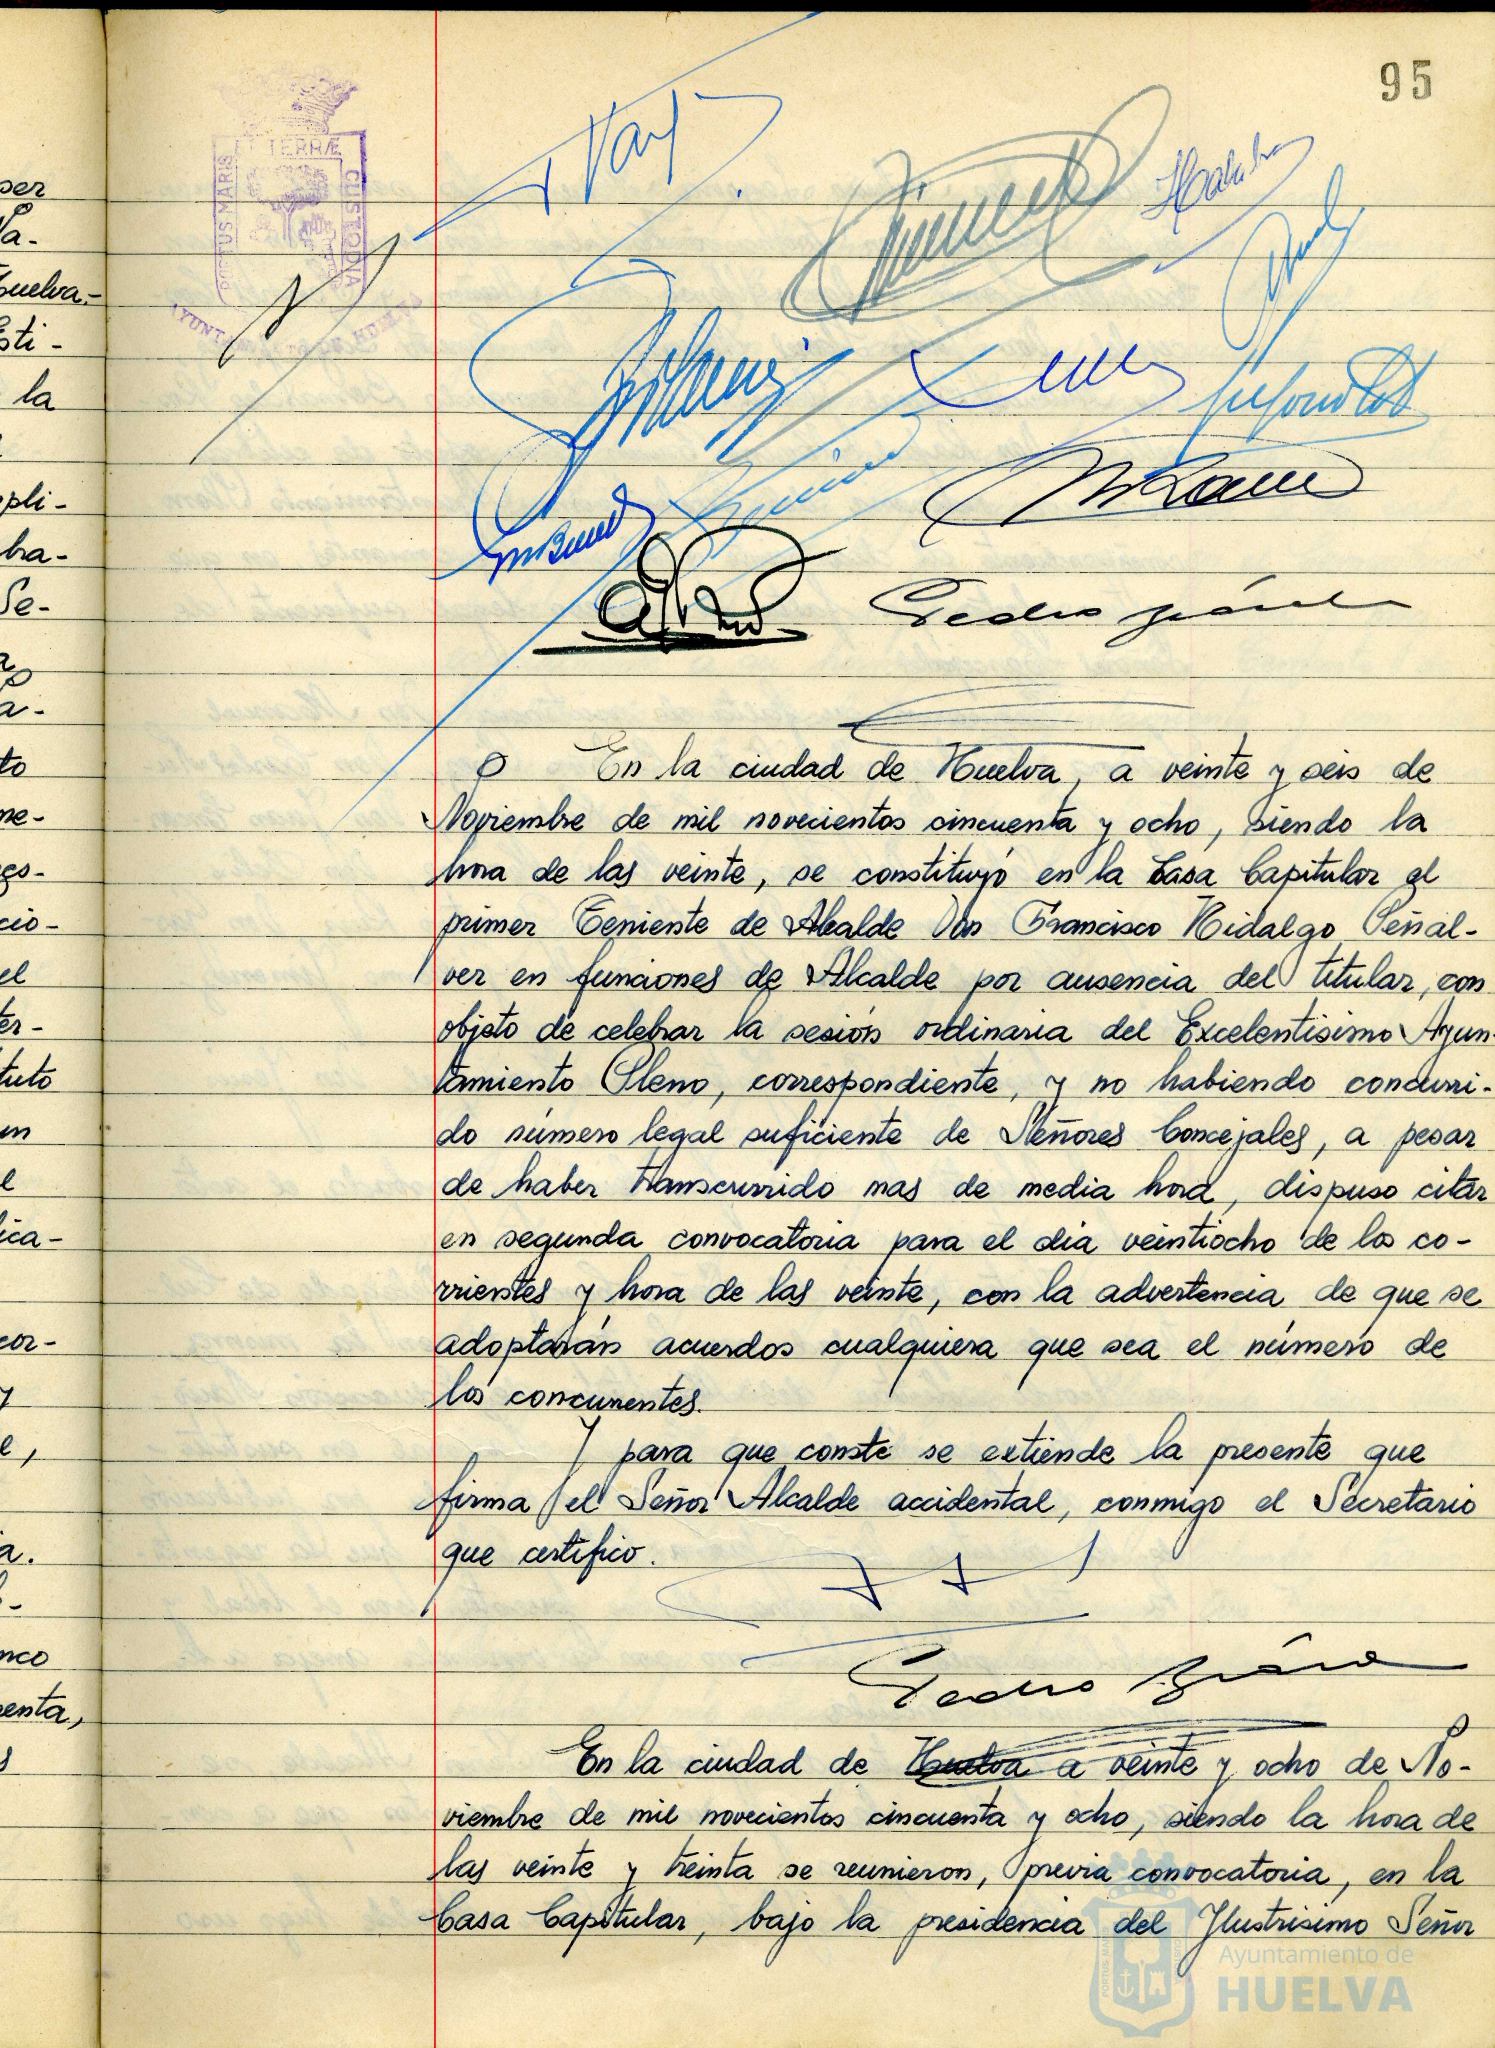 95
PORTUS MARIS
ET TERRÆ
CUSTODIA
AYUNTAMIENTO DE HUELVA
ser
Huelva,-
sti-
la
pli-
bra-
Se-
a-
to
me-
es-
cio-
el
ter-
tuto
en
ica-
cor-
y
e,
a.
nco
enta,
s
Pedro
En la ciudad de Huelva, a veinte y seis de
Noviembre de mil novecientos cincuenta y ocho, siendo la
hora de las veinte, se constituyó en la Casa Capitular el
primer Teniente de Alcalde Don Francisco Hidalgo Peñal-
ver en funciones de Alcalde por ausencia del titular, con
objeto de celebrar la sesión ordinaria del Excelentisimo Ayun-
tamiento Pleno, correspondiente, y no habiendo concurri-
do número legal suficiente de Señores Concejales, a pesar
de haber transcurrido mas de media hora, dispuso citar
en segunda convocatoria para el dia veintiocho de los co-
rrientes y hora de las veinte, con la advertencia de que se
adoptarán acuerdos cualquiera que sea el número de
los concurrentes.
Y para que conste se extiende la presente que
firma el Señor Alcalde accidental, conmigo el Secretario
que certifico.
Pedro
En la ciudad de Huelva a veinte y ocho de No-
viembre de mil novecientos cincuenta y ocho, siendo la hora de
las veinte y treinta se reunieron, previa convocatoria, en la
Casa Capitular, bajo la presidencia del Ilustrisimo Señor
Ayuntamiento de
HUELVA